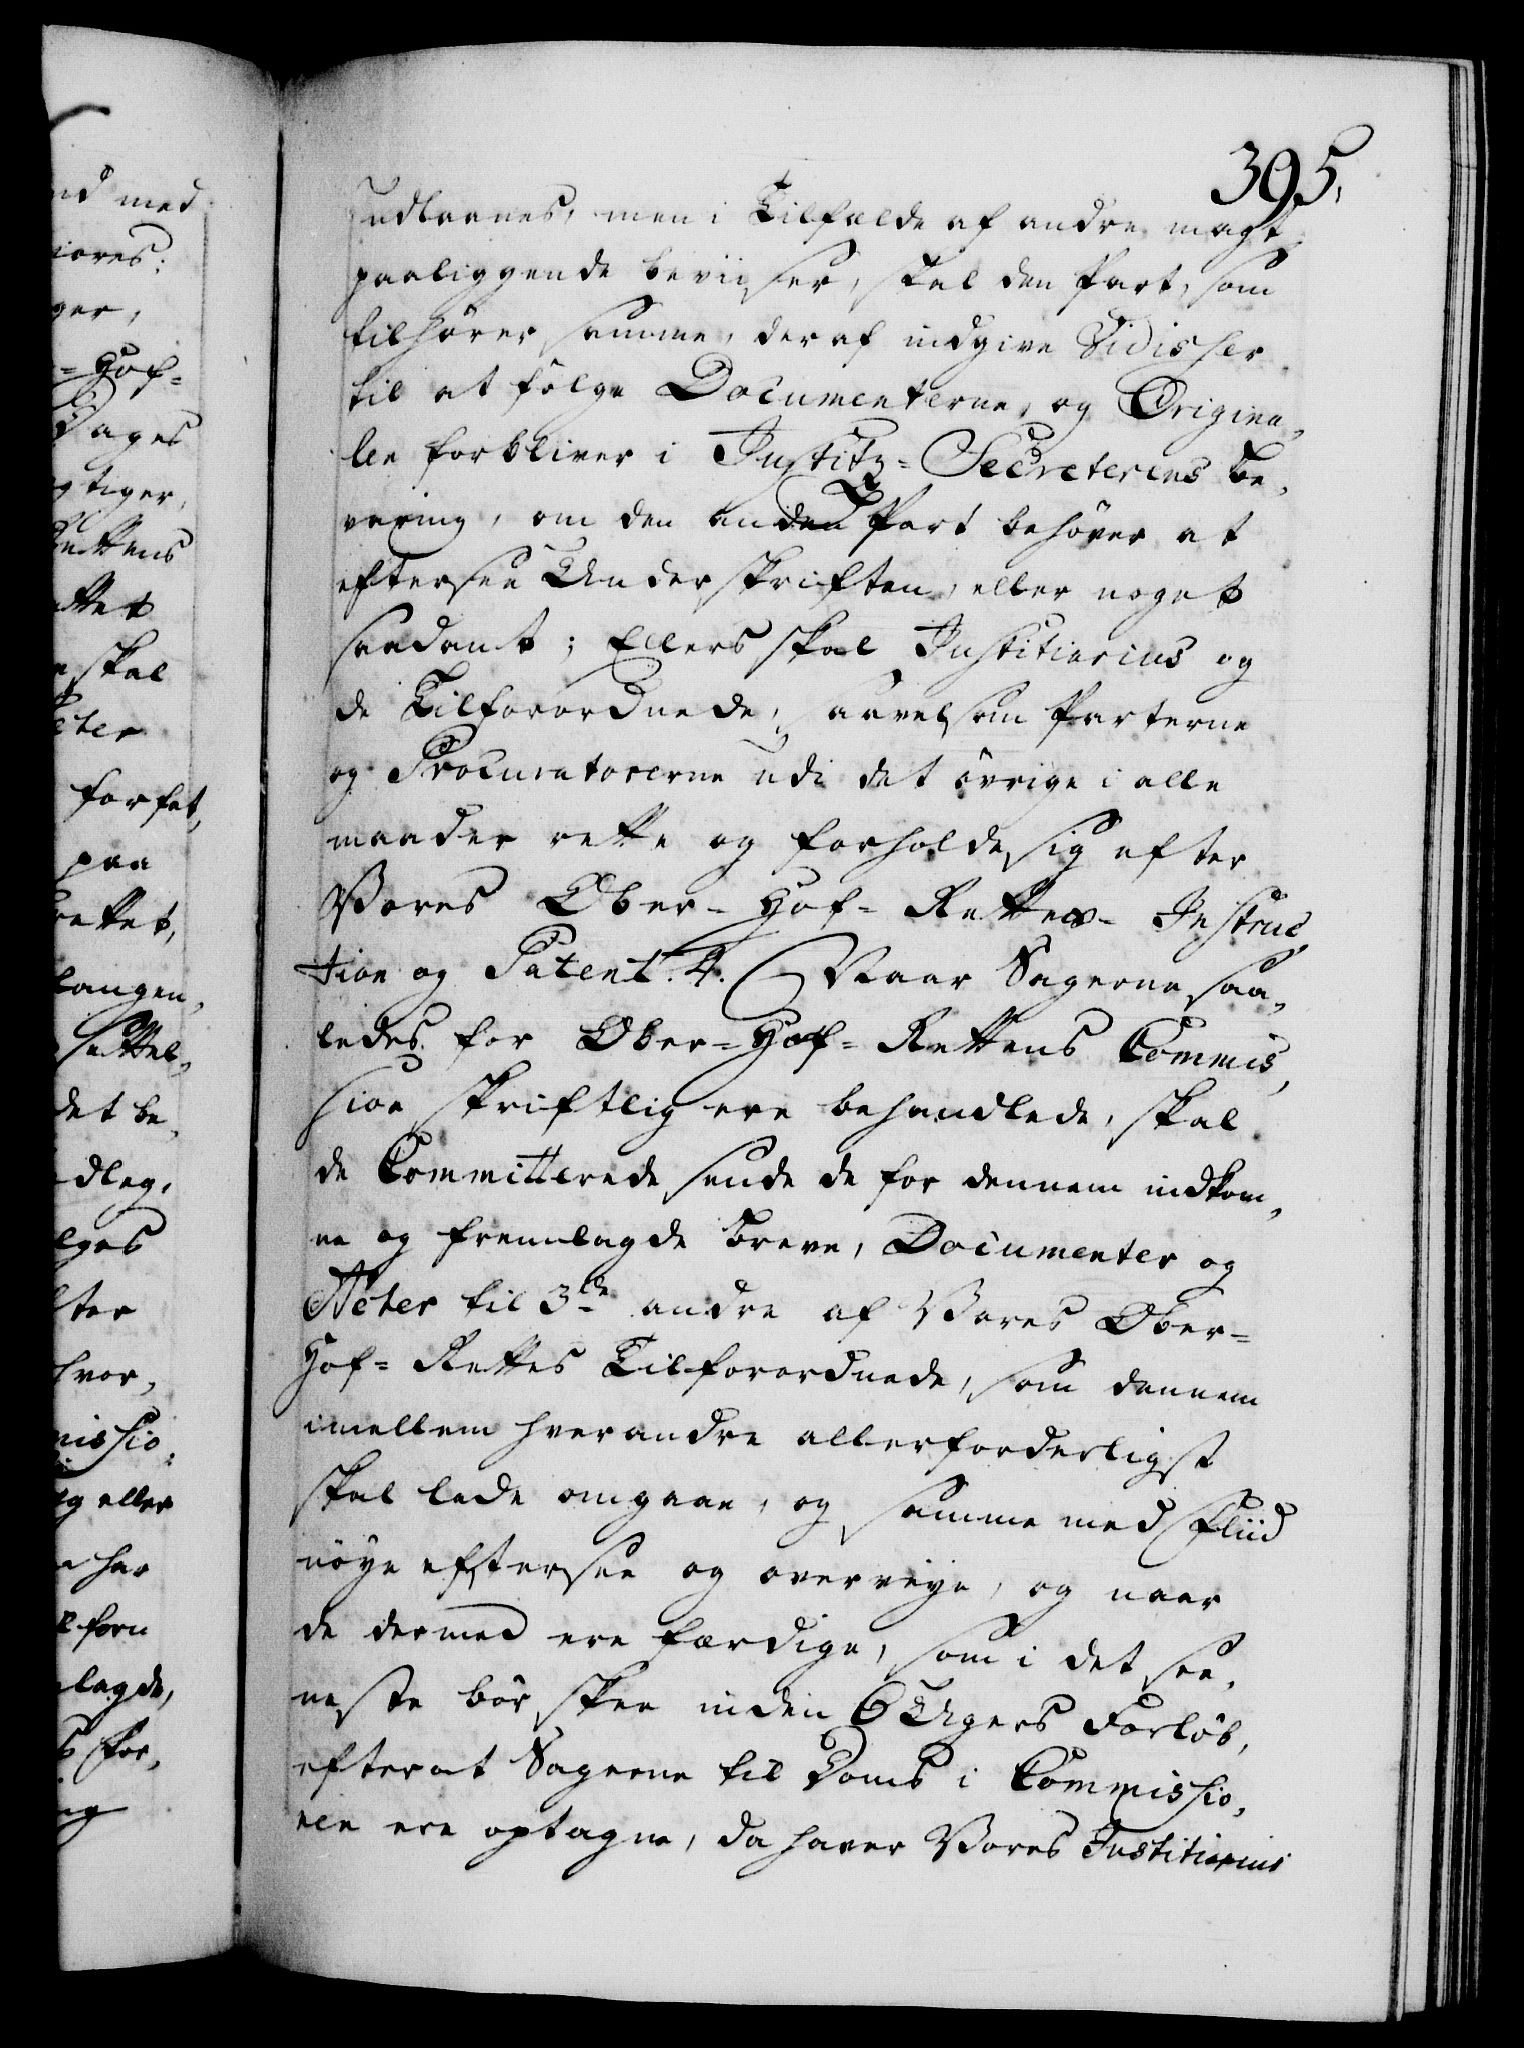 395.
udlaanes, men i Tilfælde af andre magt
paaliggende beviiser, skal den Part, som
tilhører samme, deraf indgive Vidisser
til at følge Documenterne, og Origina-
len forbliver i Justitz-Secreterens be-
varing, om den anden Part behøver at
eftersee Underskriften, eller noget
saadant; Ellers skal Justitiarius og
de Tilforordnede, saavelsom Parterne
og Procuratorerne udi det øvrige i alle
maader rette og forholde sig efter
Vores Ober-Hof-Rettes-Instruc
tion og Patent. 4. Naar Sagerne saa-
ledes for Ober-Hof-Rettens Commis,
sion skriftlig ere behandlede, skal
de Committerede sende de for dennem indkom,
ne og fremlagde breve, Documenter og
Acter til 3de andre af Vores Ober-
Hof-Rettes Tilforordnede, som dennem
imellem hverandre allerforderligst
skal lade omgaae, og samme med Fliid
nøye eftersee og overveye, og naar
de dermed ere færdige, som i det see,
neste bør skee inden 6 Ugers Forløb,
efterat Sagerne til Doms i Commissio,
nen ere optagne, da haver Vores Justitiarius
nd med
iores:
ger,
-Hof-
Dages
gtiger,
Rettens
ettet
skal
Acter
forfat,
paa
rettet,
langen,
det be,
dlag,
lges
hvor,
missio,
og eller
har
forn
lagde,
for,
ng